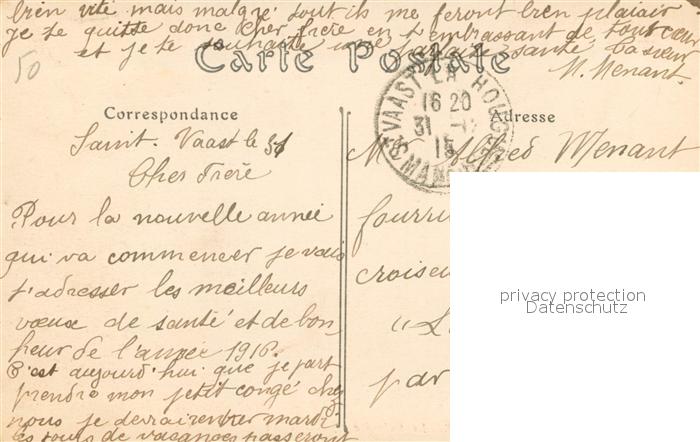 bien vite mais malgré tout ils me feront bien plaisir
je te quitte donc Cher Frère en t'embrassant de tout cœur
et je te souhaite une santé, ta sœur
M. Menant.
50
Carte Postale
Correspondance
Adresse
Saint. Vaast le 31
Cher Frère
Pour la nouvelle année
qui va commencer je vais
t'adresser les meilleurs
vœux de santé et de bon
heur de l'année 1916.
C'est aujourd'hui que je part
prendre mon petit congé chez
nous je devrai rentrer mardi
les jours de vacances passeront
ST VAAST LA HOUGUE
16 20
31
15
MANCHE
Mr Alfred Menant
fourri
croiseu
"L
par
privacy protection
Datenschutz